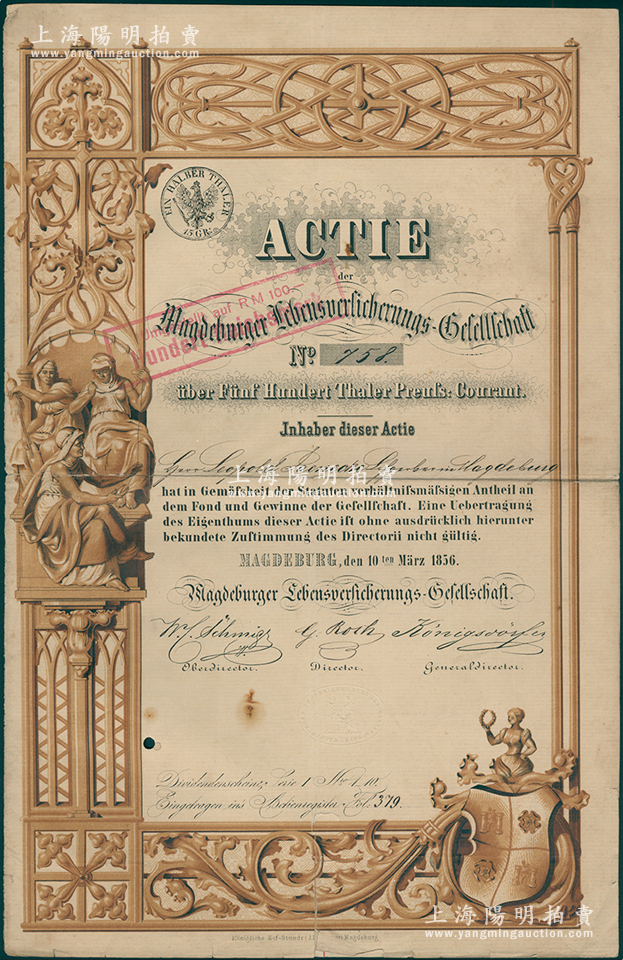 上海陽明拍賣
www.yangmingauction.com
EIN HALBER THALER
15 GR.
ACTIE
der
Umgestellt auf RM 100.–
Hundert Reichsmark
Magdeburger Lebensversicherungs-Gesellschaft
No 758.
über Fünf Hundert Thaler Preuſs: Courant.
Inhaber dieser Actie
Herr Leopold in Magdeburg
hat in Gemäſsheit der Statuten verhältniſsmäſsigen Antheil an
dem Fond und Gewinne der Geſellſchaft. Eine Uebertragung
des Eigenthums dieser Actie iſt ohne ausdrücklich hierunter
bekundete Zuſtimmung des Directorii nicht gültig.
MAGDEBURG, den 10ten März 1856.
Magdeburger Lebensversicherungs-Gesellschaft.
G. Roth Königsdörfer
Oberdirector. Director. Generaldirector.
Dividendenscheine, Serie 1 No 1-10.
Eingetragen ins Actienregister Fol. 379.
上海陽明拍賣
www.yangmingauction.com
上海陽明拍賣
www.yangmingauction.com